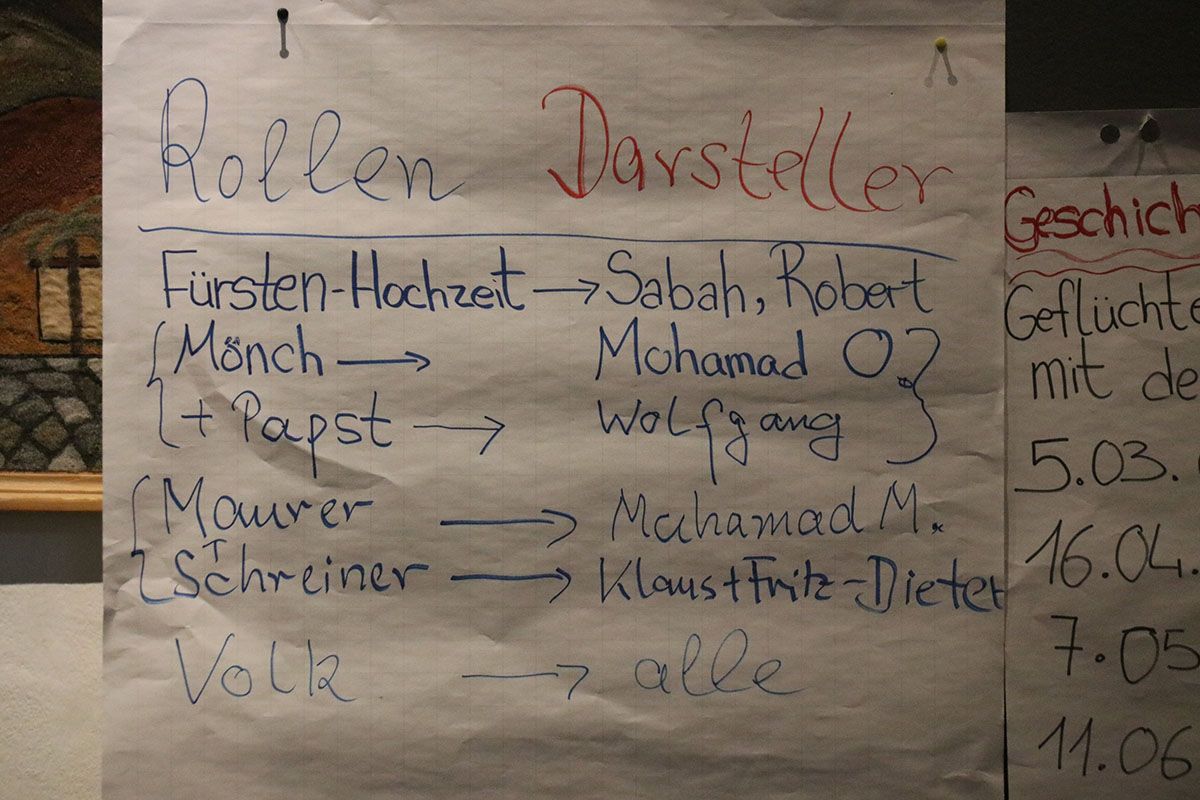 Rollen Darsteller
Fürsten-Hochzeit → Sabah, Robert
{ Mönch → Mohamad O. }
{ + Papst → Wolfgang }
{ Maurer → Muhamad M.
{ Schreiner → Klaus + Fritz-Dieter
Volk → alle
Geschich
Geflüchte
mit de
5.03.
16.04.
7.05
11.06